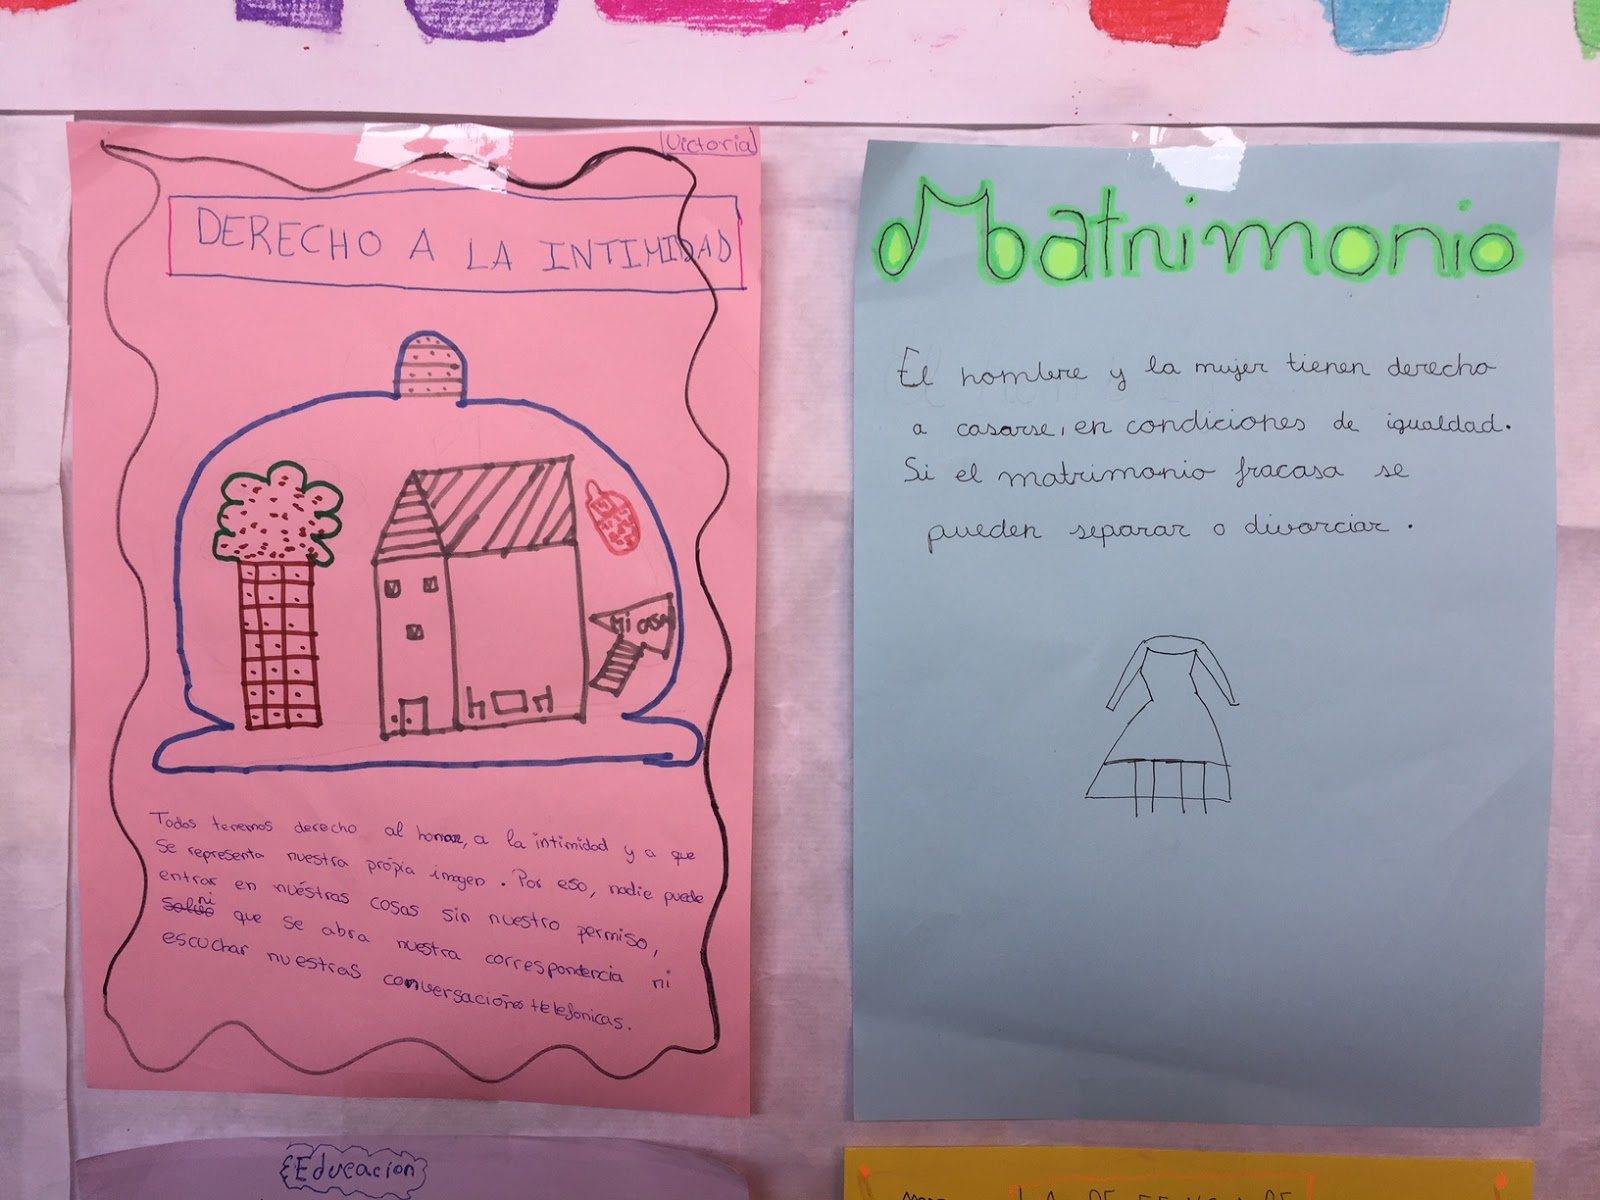 Victoria
DERECHO A LA INTIMIDAD
Mi casa
Todos tenemos derecho al honor, a la intimidad y a que
se representa nuestra própia imagen. Por eso, nadie puede
entrar en nuéstras cosas sin nuestro permiso,
ni que se abra nuestra correspondencia ni
escuchar nuestras conversaciónes telefonicas.
Matrimonio
El hombre y la mujer tienen derecho
a casarse, en condiciones de igualdad.
Si el matrimonio fracasa se
pueden separar o divorciar.
Educacion